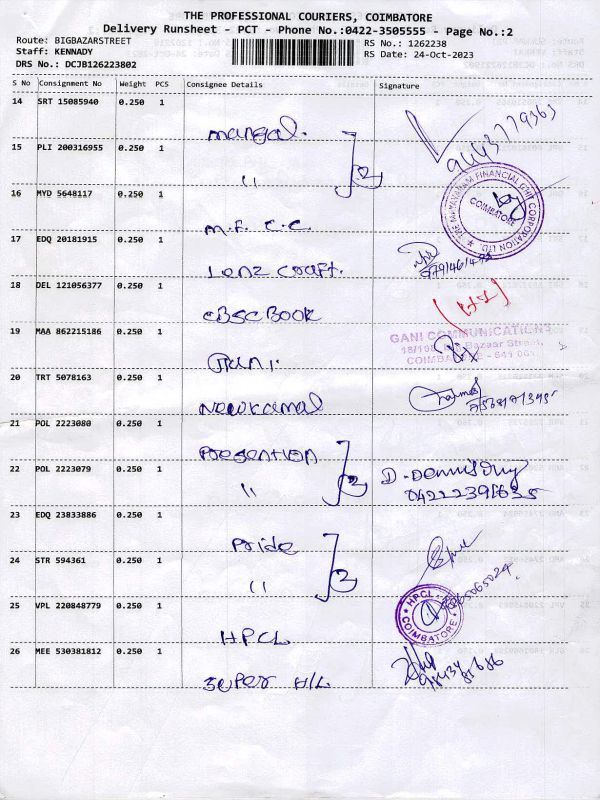 THE PROFESSIONAL COURIERS, COIMBATORE
Delivery Runsheet - PCT - Phone No.:0422-3505555 - Page No.:2
Route: BIGBAZARSTREET
Staff: KENNADY
DRS No.: DCJB126223802
RS No.: 1262238
RS Date: 24-Oct-2023
S No Consignment No Weight PCS Consignee Details Signature
14 SRT 15085940 0.250 1
mangal.
9443779363
15 PLI 200316955 0.250 1
"
2
THE RAMAYANAM FINANCIAL CHIT CORPORATION LTD.
COIMBATORE
16 MYD 5648117 0.250 1
M.F. C.C.
17 EDQ 20181915 0.250 1
Lenz Craft.
18 DEL 121056377 0.250 1
CBSC BOOK
19 MAA 862215186 0.250 1
GANI COMMUNICATIONS
Bazaar Street,
COIMBATORE - 641 001
Gani.
20 TRT 5078163 0.250 1
Newkamal
21 POL 2223080 0.250 1
Presention
22 POL 2223079 0.250 1
"
2
04222391635
23 EDQ 23833886 0.250 1
Pride
24 STR 594361 0.250 1
"
2
25 VPL 220848779 0.250 1
HPCL
HPCL
COIMBATORE
26 MEE 530381812 0.250 1
Super H/L